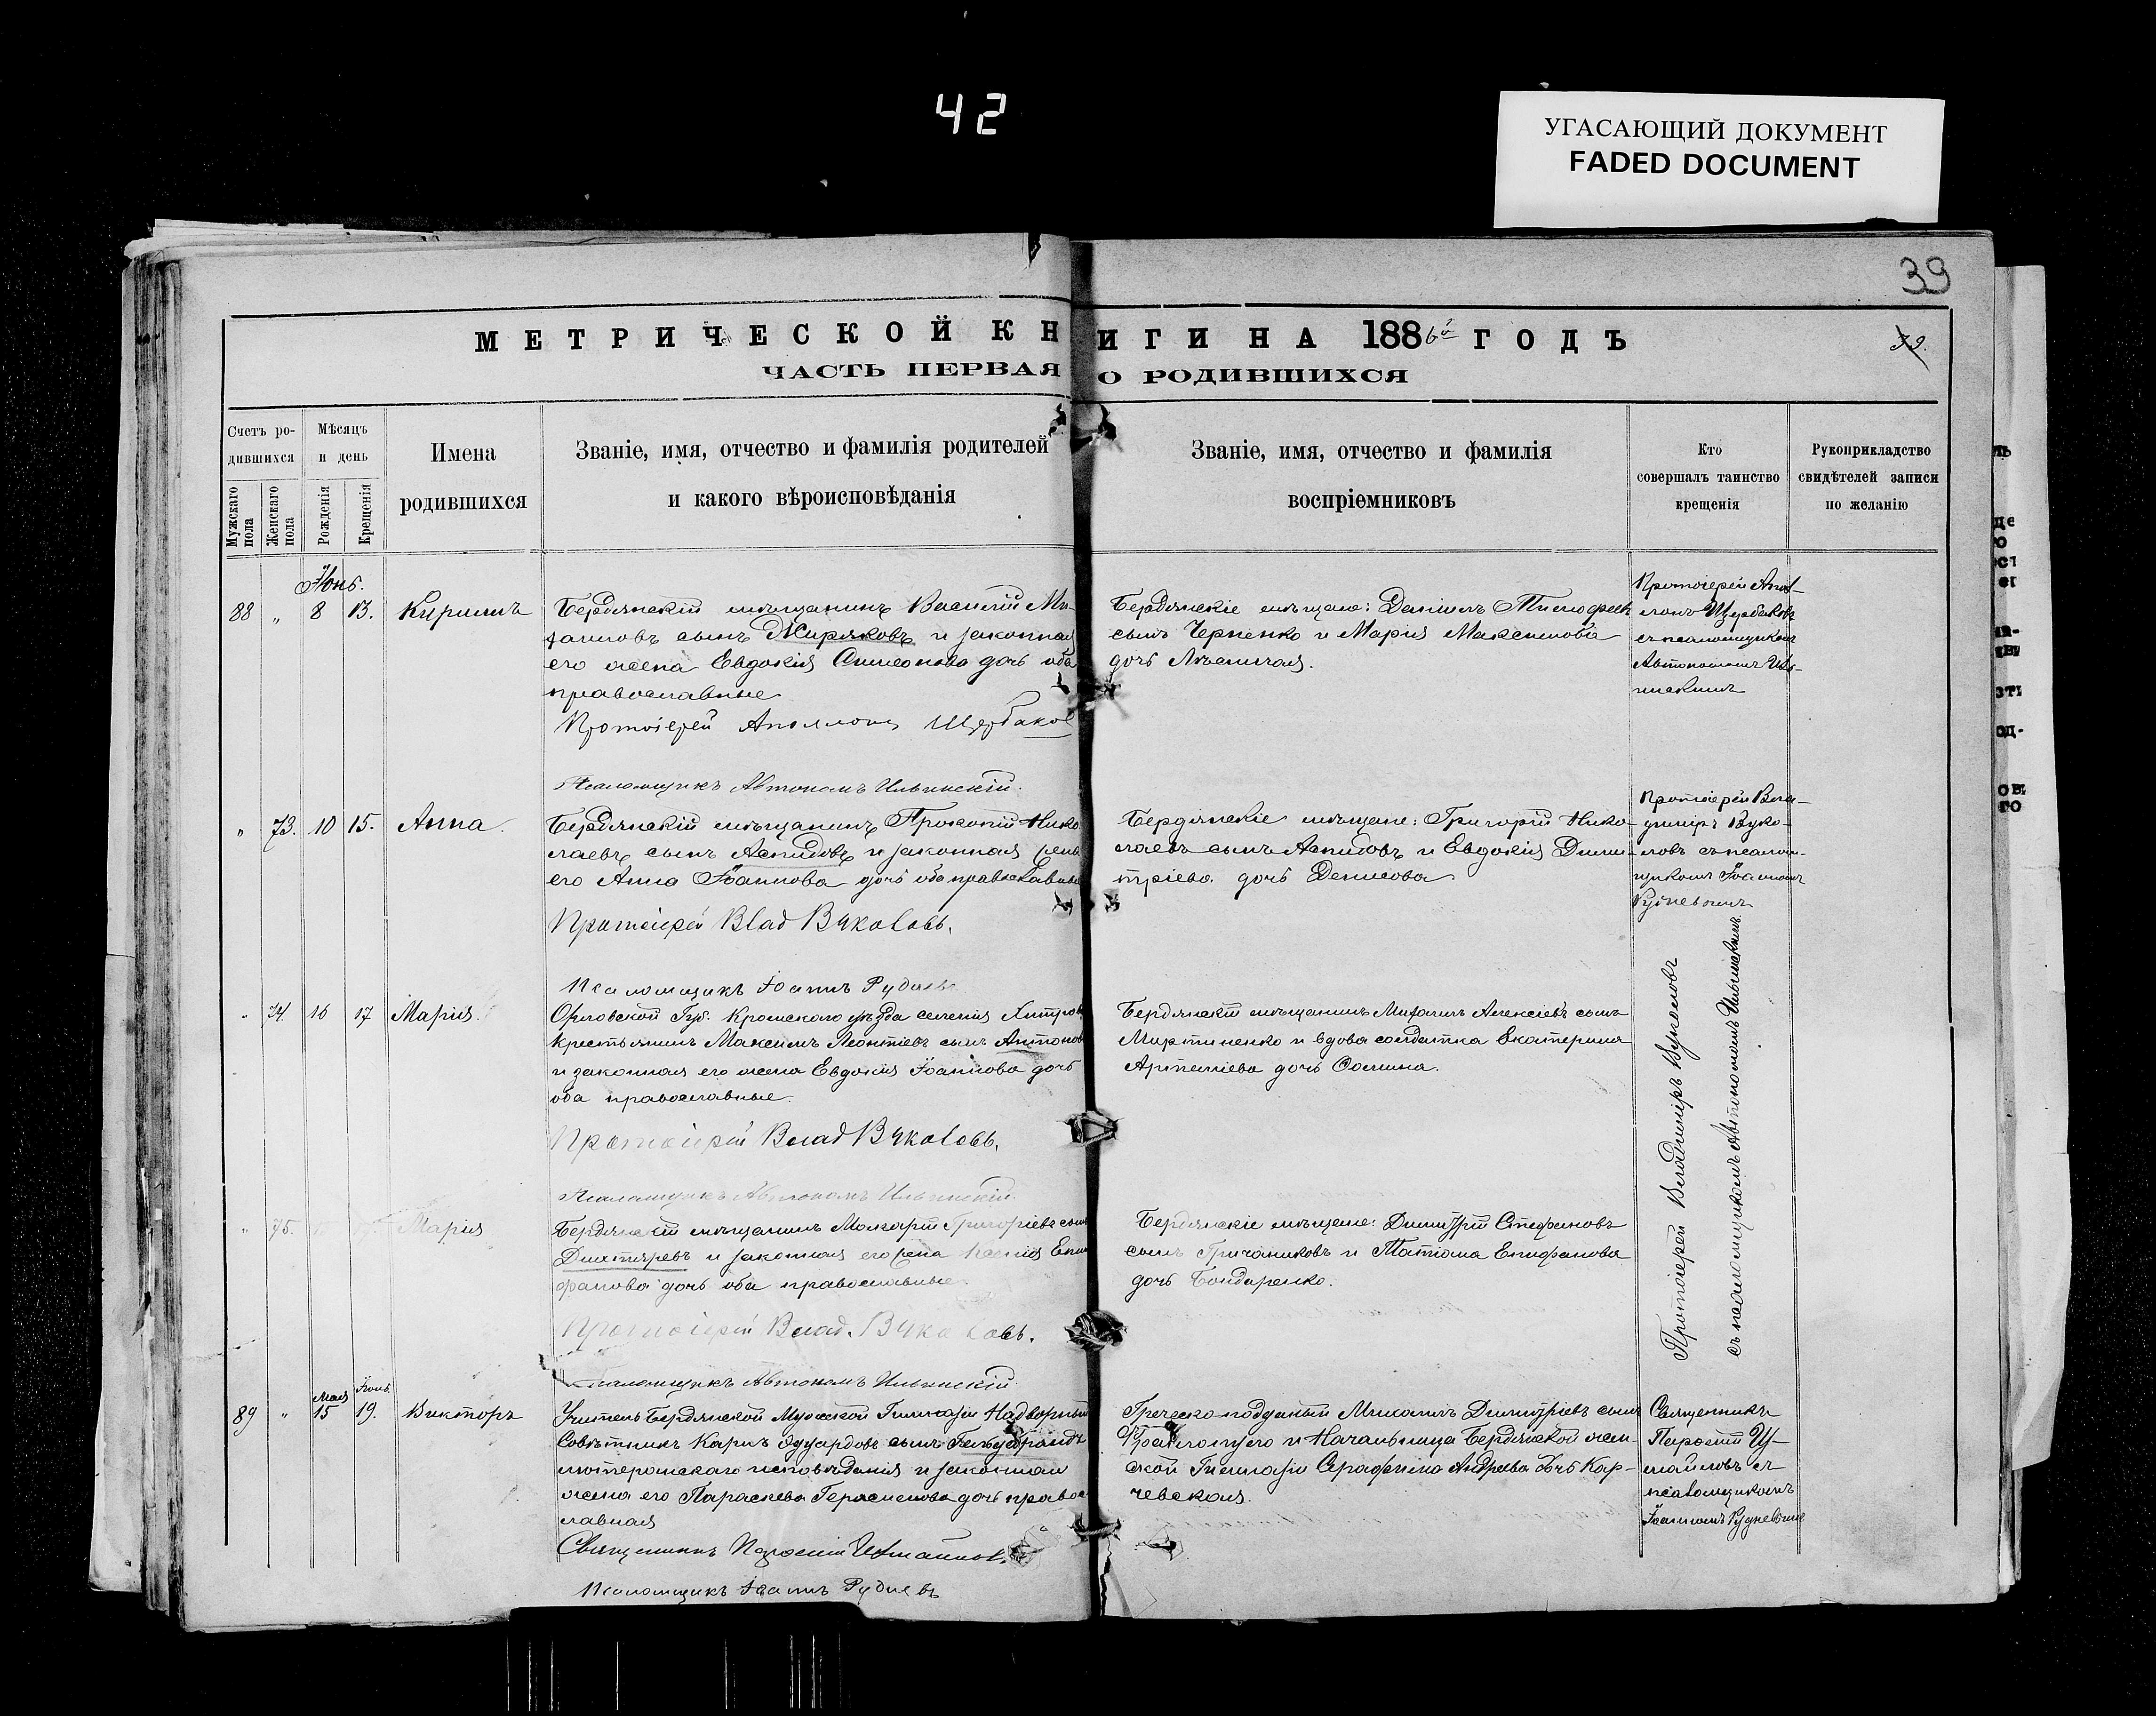 42
УГАСАЮЩИЙ ДОКУМЕНТ
FADED DOCUMENT
39
МЕТРИЧЕСКОЙ КНИГИ НА 1886й ГОДЪ
39.
ЧАСТЬ ПЕРВАЯ О РОДИВШИХСЯ
Счетъ родившихся
Мужскаго пола
Женскаго пола
Мѣсяцъ и день
Рожденія
Крещенія
Имена
родившихся
Званіе, имя, отчество и фамилія родителей
и какого вѣроисповѣданія
Званіе, имя, отчество и фамилія
воспріемниковъ
Кто
совершалъ таинство
крещенія
Рукоприкладство
свидѣтелей записи
по желанію
Іюнь.
88 „ 8 13. Кириллъ
Бердянскій мѣщанинъ Василій Ми-
хаиловъ сынъ Жиряковъ и законная
его жена Евдокія Симеонова дочь оба
православные
Протоіерей Аполлонъ Щербаков
Псаломщикъ Автономъ Ильинскій.
Бердянскіе мѣщане: Даніилъ Тимофеев
сынъ Черненко и Марія Максимова
дочь
Протоіерей Апол-
лонъ Щербаковъ
съ псаломщикомъ
Автономомъ Иль-
инскимъ
„ 73. 10 15. Анна.
Бердянскій мѣщанинъ Прокопій Нико-
лаевъ сынъ Аспидовъ и законная жена
его Анна Іоаннова дочь оба православные
Протоіерей Влад Вуколовъ.
Псаломщикъ Іоаннъ Рудневъ
Бердянскіе мѣщане: Григорій Нико-
лаевъ сынъ Аспидовъ и Евдокія Дими-
тріева дочь Денисова
Протоіерей Вла-
димиръ Вуко-
ловъ съ псалом-
щикомъ Іоанномъ
Рудневымъ
„ 74. 16 17 Марія.
Орловской Губ. Кромскаго уѣзда селенія Хитров
крестьянинъ Максимъ Леонтіевъ сынъ Антонов
и законная его жена Евдокія Іоаннова дочь
оба православные.
Протоіерей Влад Вуколовъ.
Псаломщикъ Автономъ Ильинскій.
Бердянскій мѣщанинъ Михаилъ Алексіевъ сынъ
Мартиненко и вдова солдатка Екатерина
Артеміева дочь Сомина.
Протоіерей Владиміръ Вуколовъ
съ псаломщикомъ Автономомъ Ильинскимъ.
„ 75. Марія
Бердянскій мѣщанинъ Макарій Григоріевъ сынъ
Дихтяревъ и законная его жена Ксенія Епи-
фанова дочь оба православные.
Протоіерей Влад. Вуколовъ.
Псаломщикъ Автономъ Ильинскій.
Бердянскіе мѣщане: Димитрій Стефановъ
сынъ Гричаниковъ и Татіана Епифанова
дочь Бондаренко.
Мая Іюнь.
89 „ 15 19. Викторъ
Учитель Бердянской Мужской Гимназіи Надворный
Совѣтникъ Карлъ Эдуардовъ сынъ Гильдебрандтъ
лютеранскаго исповѣданія и законная
жена его Параскева Герасимова дочь право-
славная
Священникъ Паросій Измаиловъ
Псаломщикъ Іоаннъ Рудневъ
Греческо-подданый Михаилъ Димитріевъ сынъ
и Начальница Бердянской жен-
ской Гимназіи Серафима Андреева дочь Кар-
чевская.
Священникъ
Паросій Из-
маиловъ съ
псаломщикомъ
Іоанномъ Рудневымъ